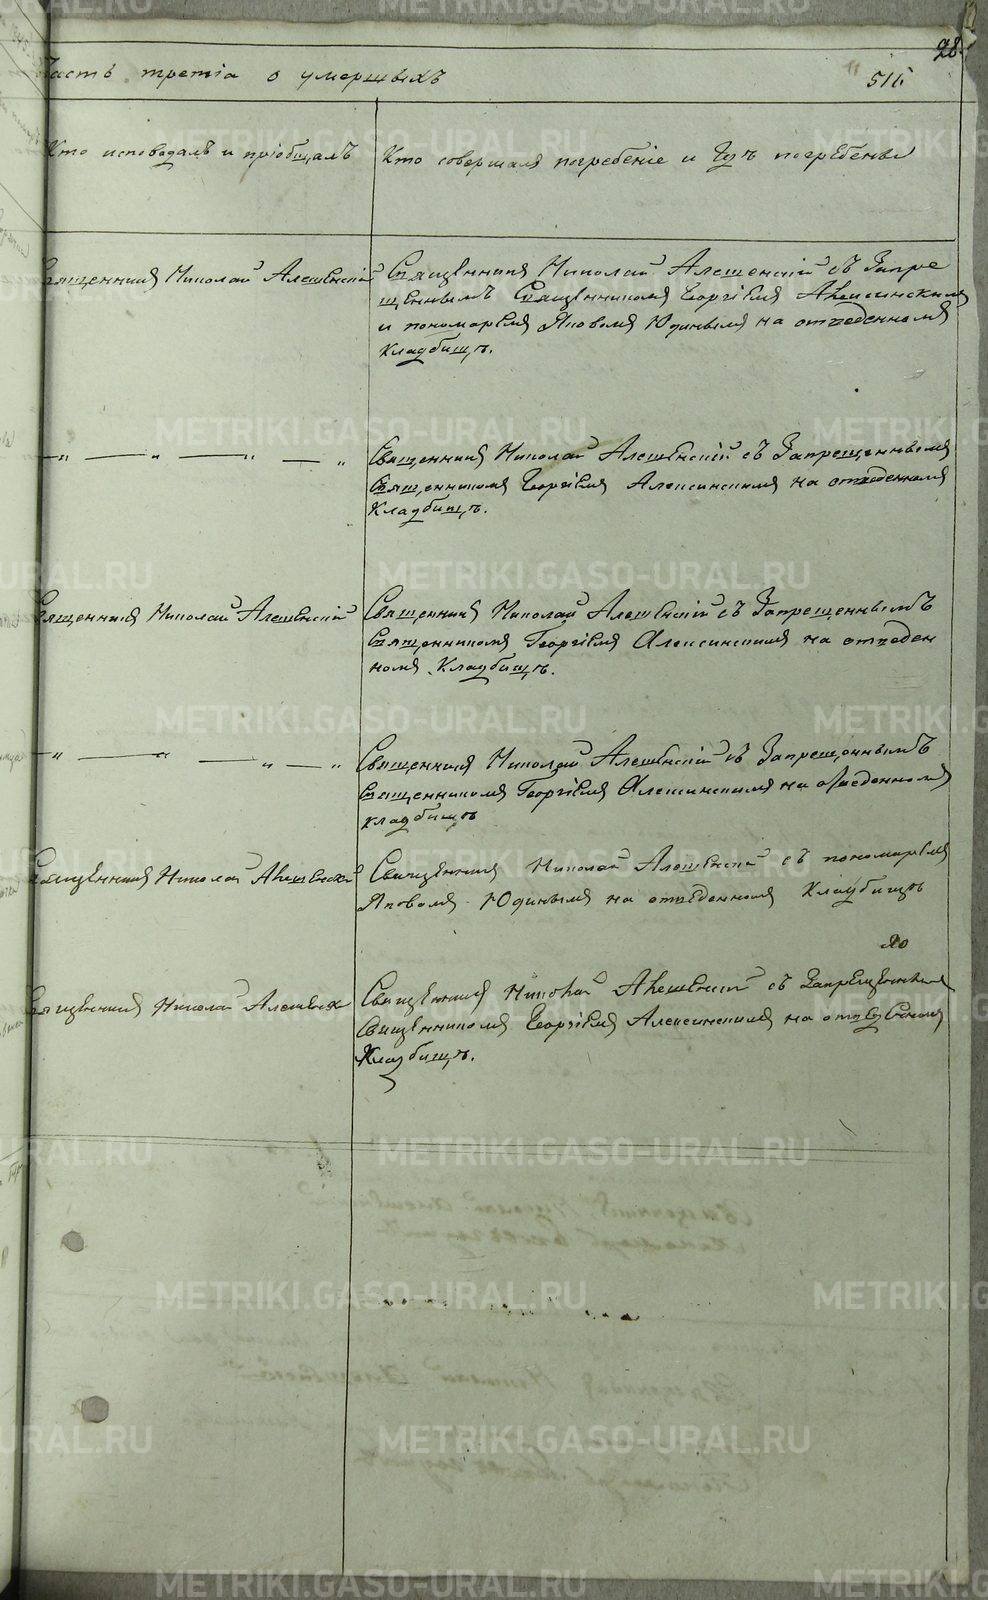 28.
Часть третіа о умершыхъ
515
Кто исповодалъ и пріобщалъ
Кто совершалъ погребеніе и гдѣ погребены
Священникъ Николай Алешенскій
Священникъ Николай Алешенскій съ Запре
щеннымъ Священникомъ Георгіемъ Алексинскимъ
и пономаремъ Яковомъ Юдинымъ на отведенномъ
кладбищѣ.
— " — " — " — "
Священникъ Николай Алешенскій съ Запрещеннымъ
Священникомъ Георгіемъ Алексинскимъ на отведенномъ
Кладбищѣ.
Священникъ Николай Алешенскій
Священникъ Николай Алешенскій съ Запрещеннымъ
Священникомъ Георгіемъ Алексинскимъ на отведен
номъ Кладбищѣ.
— " — " — " — "
Священникъ Николай Алешенскій съ Запрещеннымъ
Священникомъ Георгіемъ Алексинскимъ на отведенномъ
кладбищѣ
Священникъ Николай Алешенскій
Священникъ Николай Алешенскій съ пономаремъ
Яковомъ Юдинымъ на отведенномъ Кладбищѣ
Священникъ Николай Алешенск
Священникъ Николай Алешенскій съ Запрещеннымъ
Священникомъ Георгіемъ Алексинскимъ на отведенномъ
Кладбищѣ.
METRIKI.GASO-URAL.RU